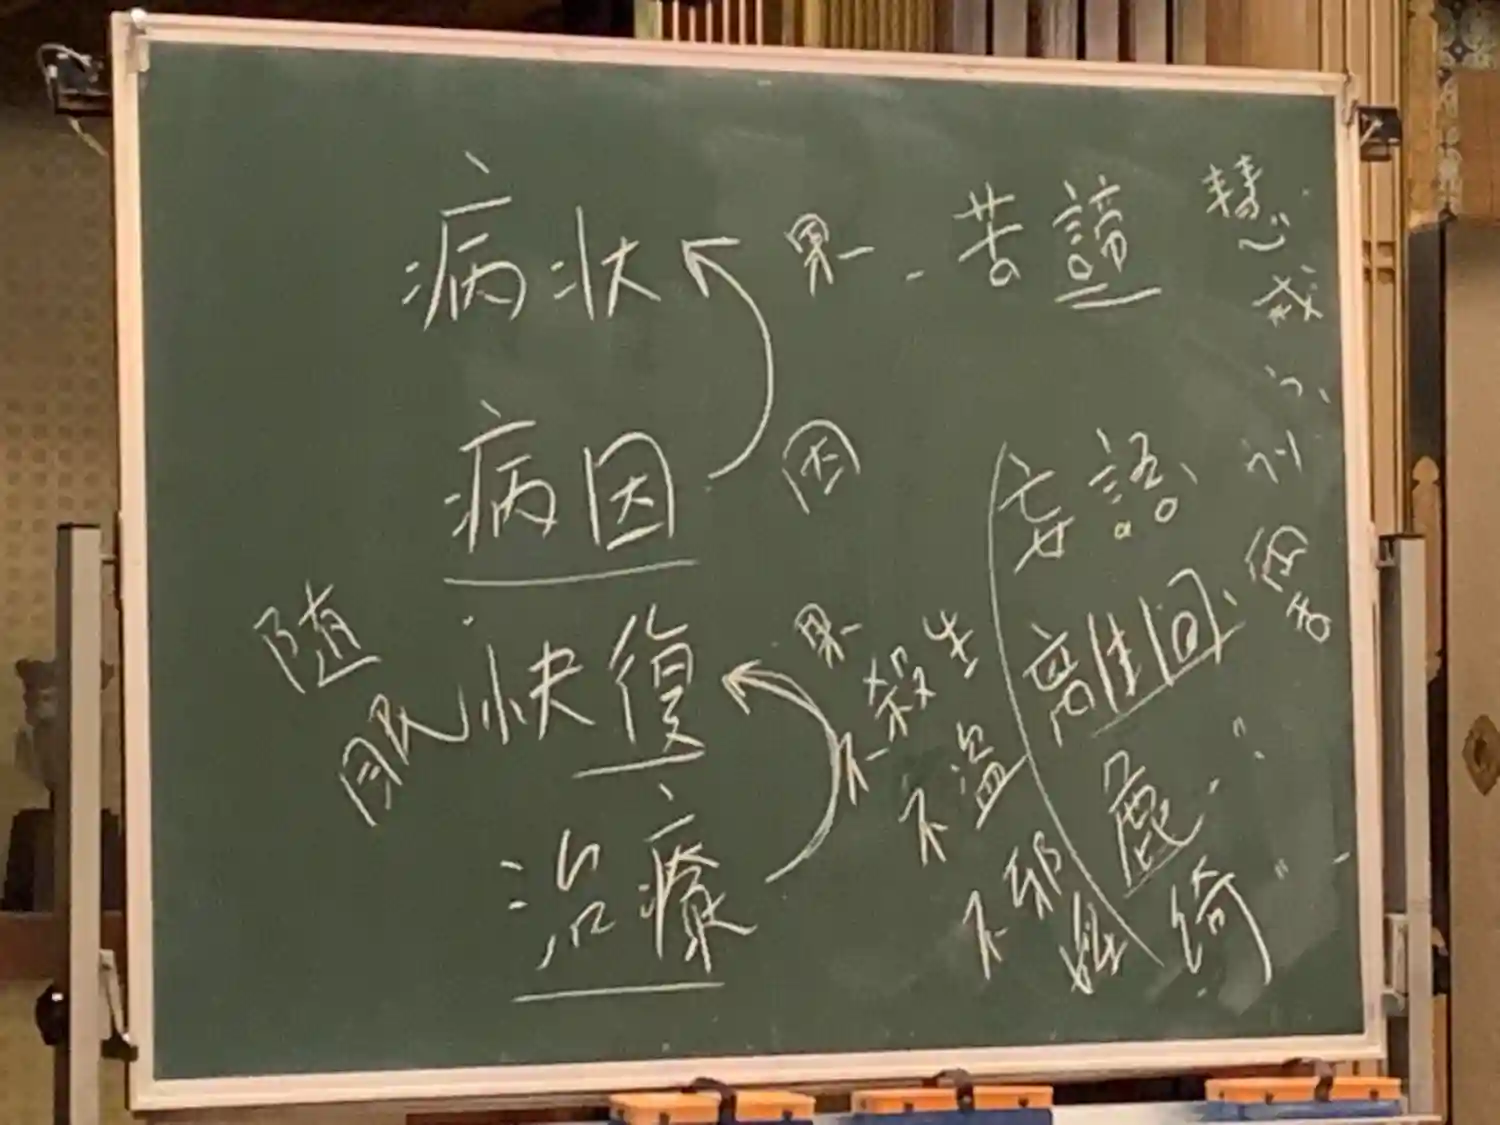 病状 果 苦諦
病因 因
快復 果
治療
随眠
不殺生
不盗
不邪婬
妄語
離間
麁
綺
慧
戒